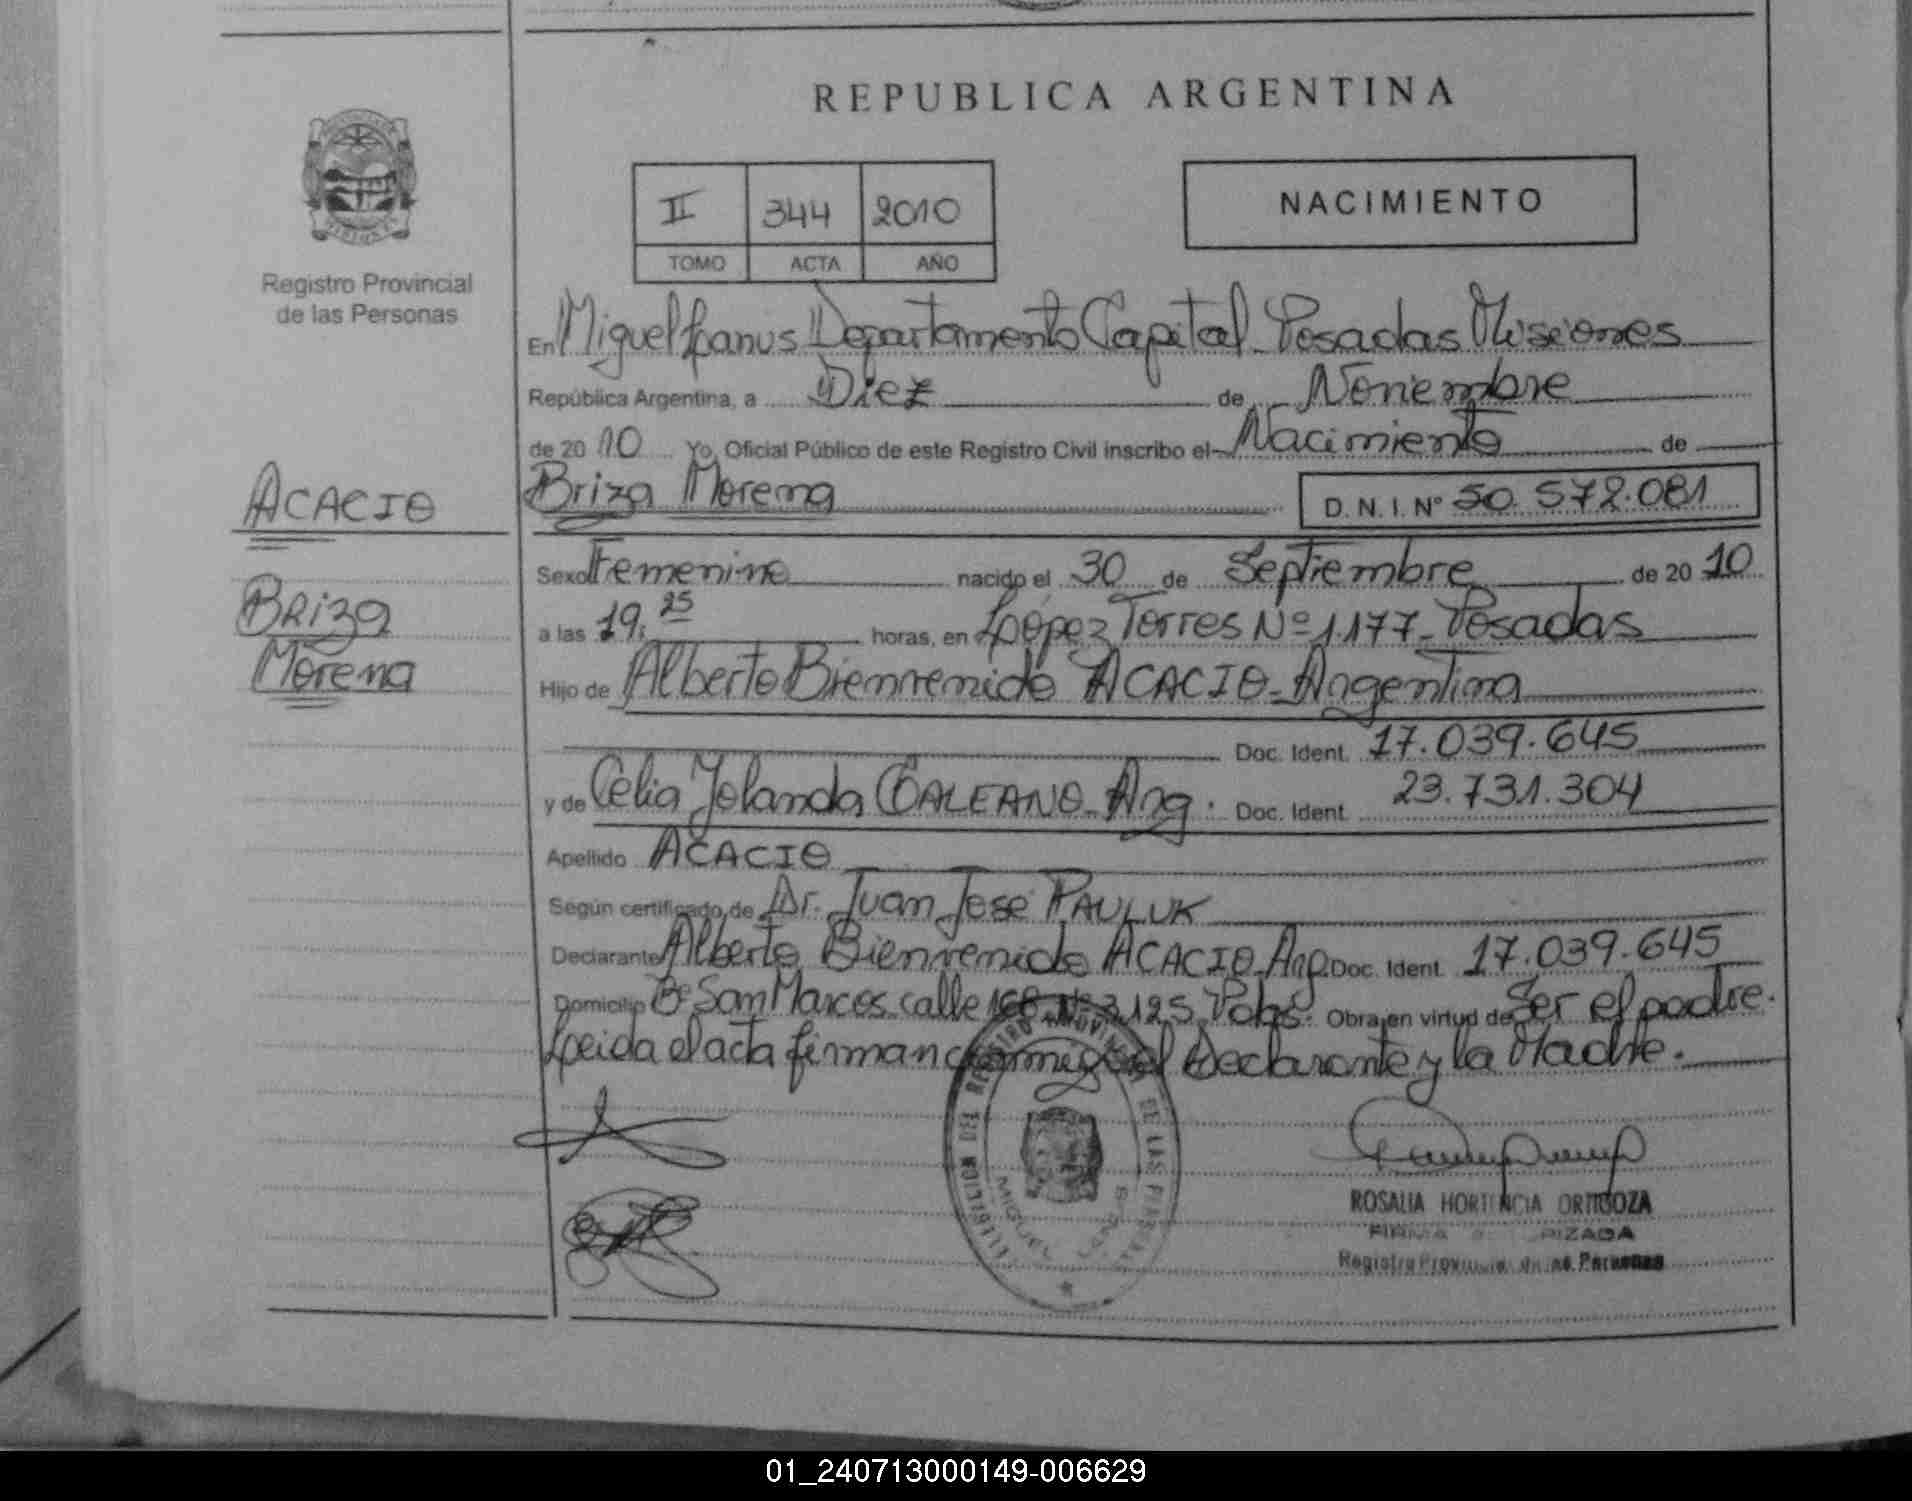 REPUBLICA ARGENTINA
II 344 2010
TOMO ACTA AÑO
NACIMIENTO
Registro Provincial
de las Personas
En Miguel Lanus Departamento Capital Posadas Misiones
República Argentina, a Diez de Noviembre
de 20 10 Yo, Oficial Público de este Registro Civil inscribo el Nacimiento de
Briza Morena D. N. I. Nº 50.572.081
ACACIO
Briza
Morena
Sexo Femenino nacido el 30 de Septiembre de 20 10
a las 19:25 horas, en López Torres Nº 1.177- Posadas
Hijo de Alberto Bienvenido ACACIO- Argentina
Doc. Ident. 17.039.645
y de Celia Yolanda GALEANO- Arg. Doc. Ident. 23.731.304
Apellido ACACIO
Según certificado de Dr. Juan José PAULUK
Declarante Alberto Bienvenido ACACIO-Arg. Doc. Ident. 17.039.645
Domicilio Bº San Marcos calle 168 Nº 3125 Pdas. Obra en virtud de Ser el padre.
Leida el acta firman conmigo el Declarante y la Madre.
REGISTRO PROVINCIAL DE LAS PERSONAS
MIGUEL LANUS
ROSALIA HORTENCIA ORTIGOZA
FIRMA AUTORIZADA
Registro Provincial de las Personas
01_240713000149-006629